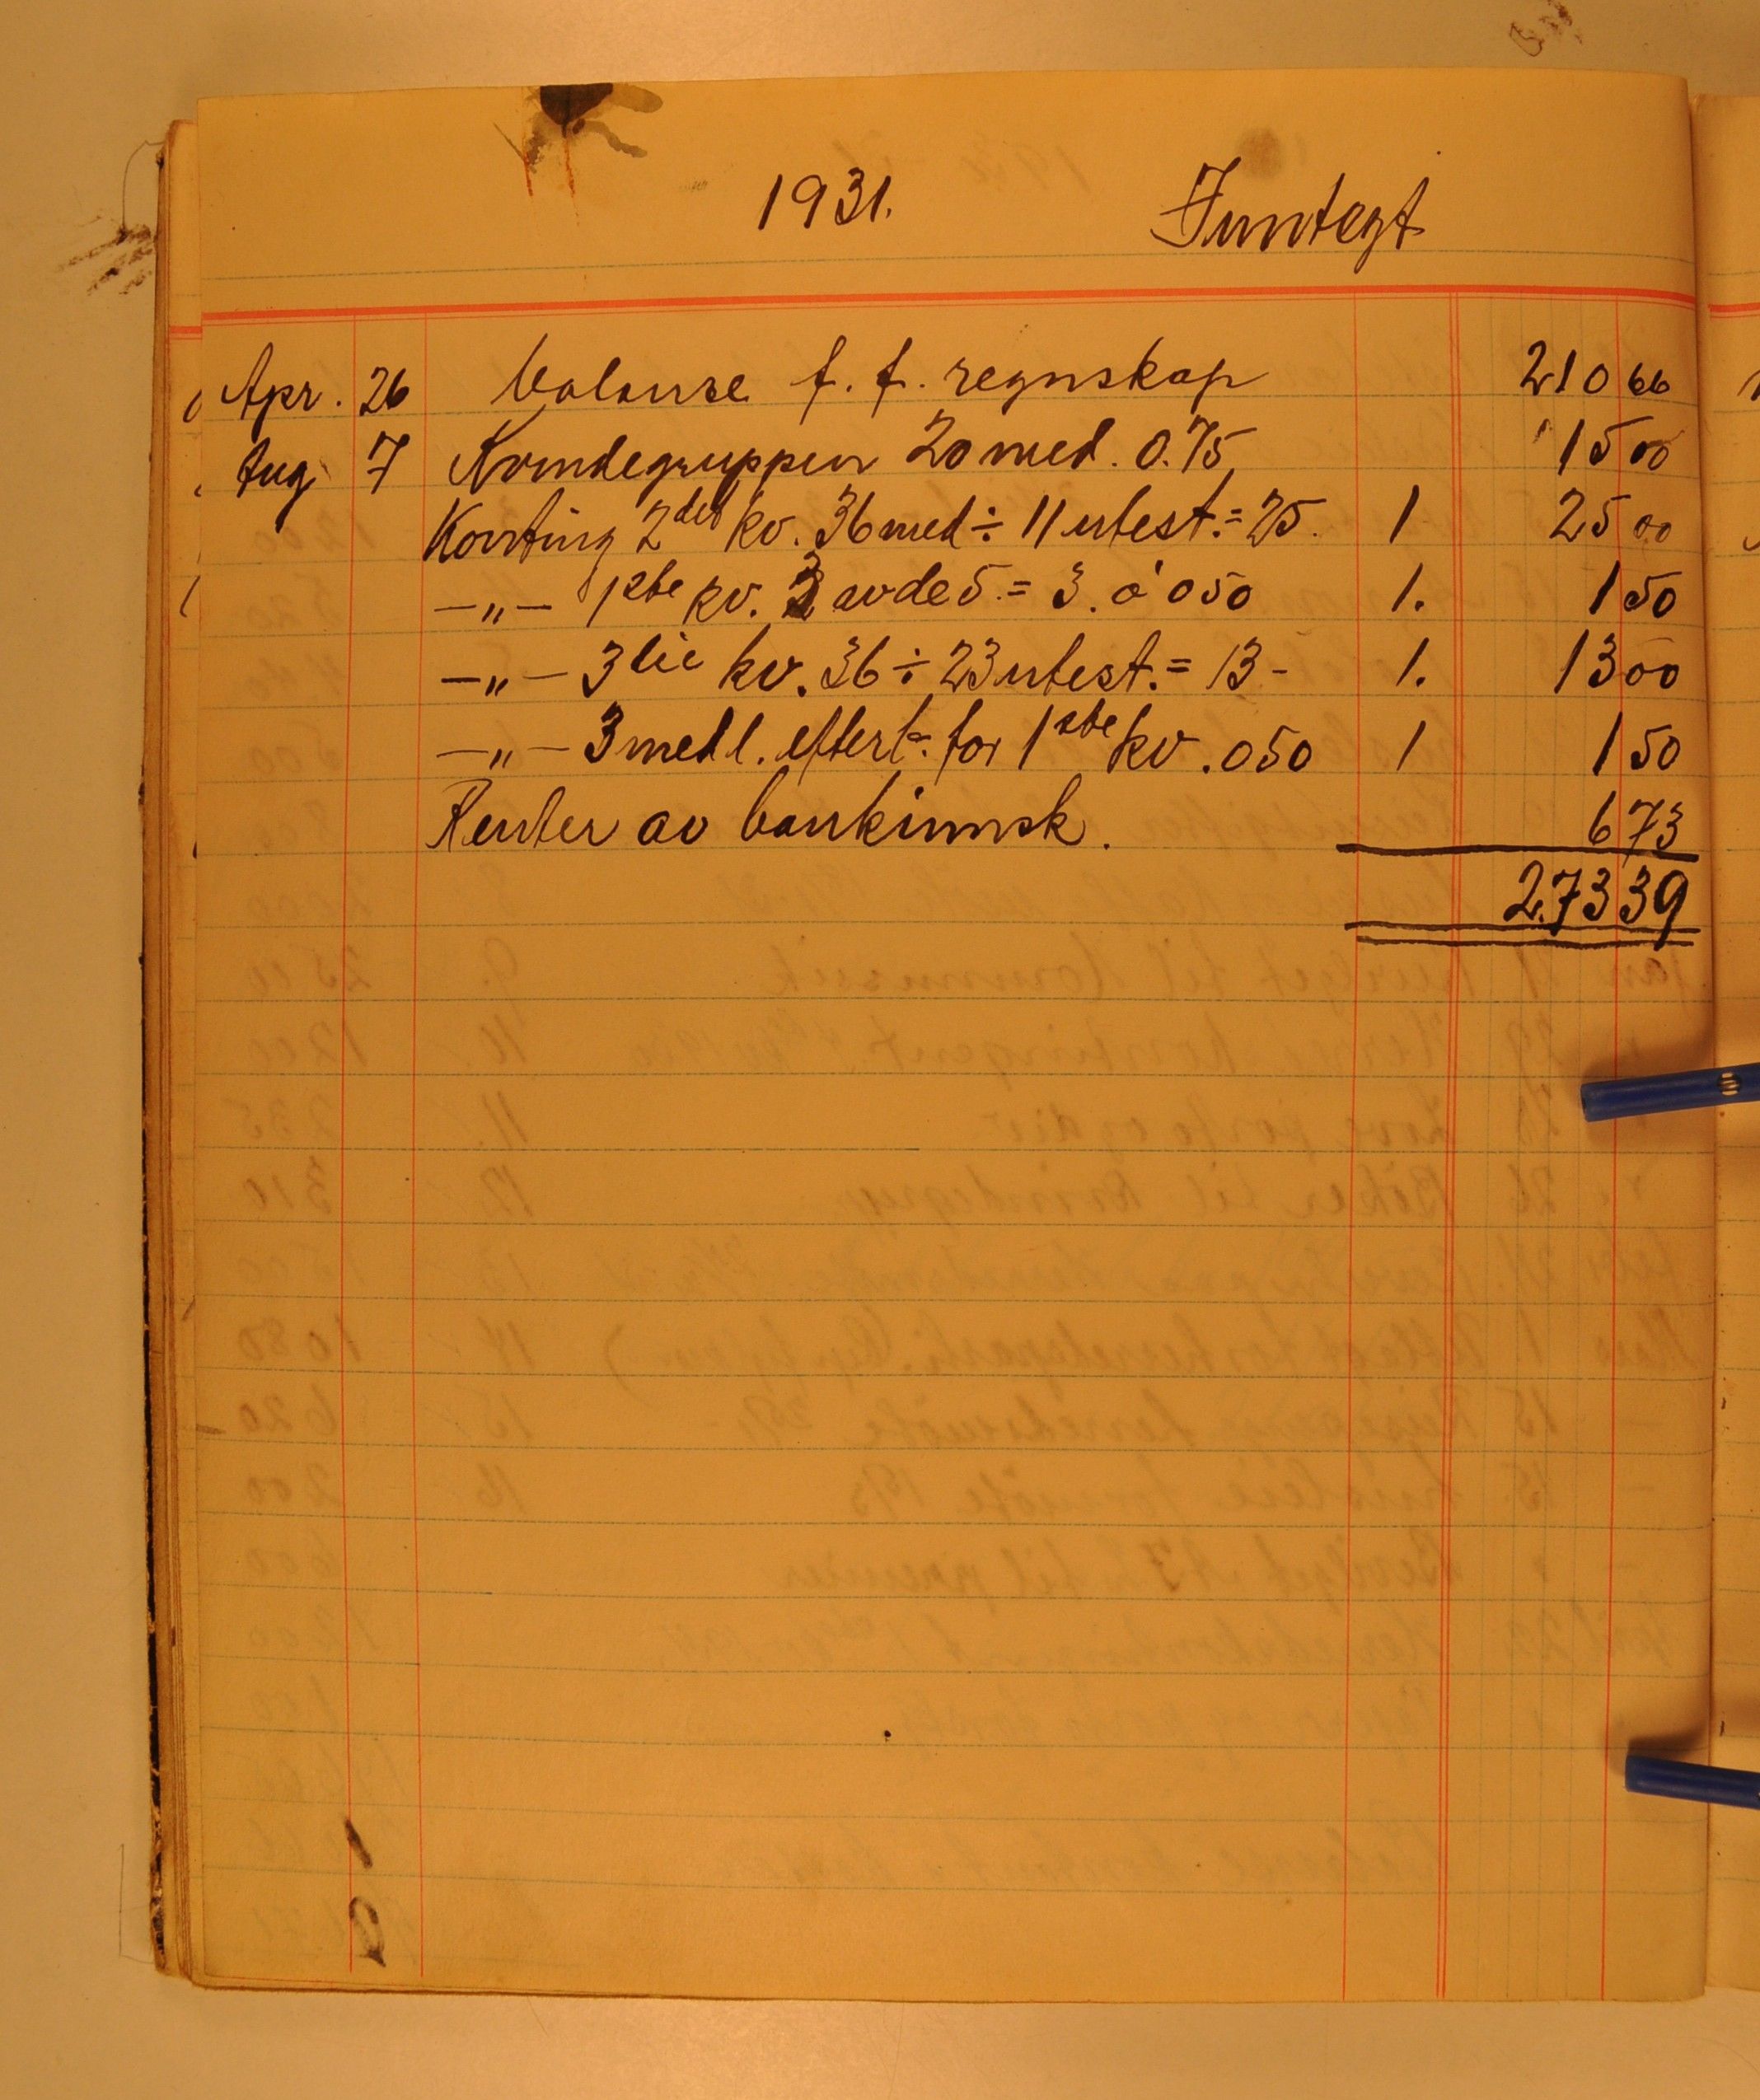 1931. Inntegt
Apr. 26 balanse f. f. regnskap 210 66
Aug 7 Kvindegruppen 20 med. 0.75 15 00
Konting 2det kv. 36 med ÷ 11 utest. = 25. 1 25 00
—„— 1ste kv. 3 av de 5. = 3. á 050 1. 1 50
—„— 3die kv. 36 ÷ 23 utest. = 13 - 1. 13 00
—„— 3 medl. efterb. for 1ste kv. 050 1 1 50
Renter av bankinnsk. 6 73
273 39